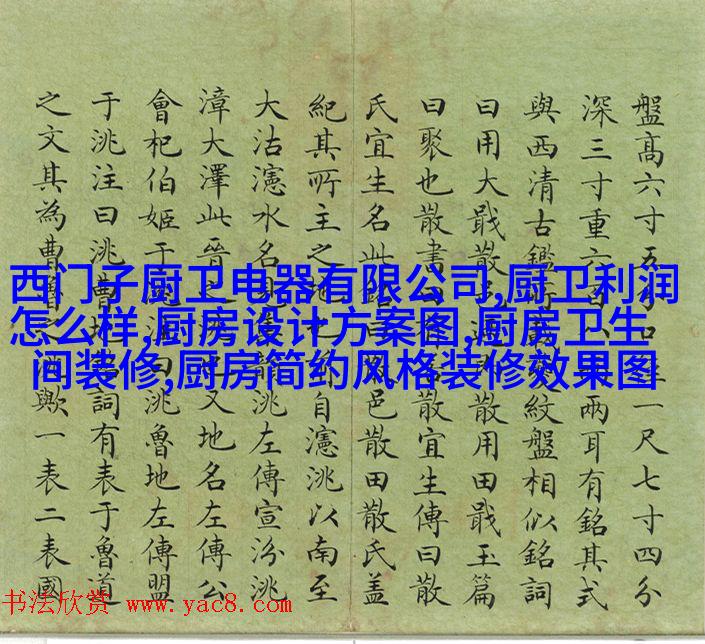 盤高六寸五分口
一尺七寸四分
深三寸重六百
兩耳有銘其式
與西清古鑑
紋盤相似銘詞
曰用大戢散
散用田戢玉篇
曰聚也散書
散宜生傳曰散
氏宜生名此
邑散田散氏蓋
紀其所主之地
自瀗洮以南至
大沽瀗水名見
洮左傳宣汾洮
漳大澤此晉
又地名左傳公
會杞伯姬于
曰洮魯地左傳盟
于洮注曰洮曹地
詞有表于魯道
之文其為曹魯之洮歟一表二表國
西门子厨卫电器有限公司,厨卫利润
怎么样,厨房设计方案图,厨房卫生
间装修,厨房简约风格装修效果图
书法欣赏 www.yac8.com